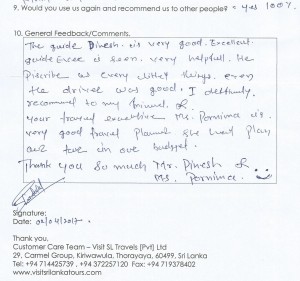 9. Would you use us again and recommend us to other people? = yes 100%
10. General Feedback/Comments.
The guide Dinesh is very good. Excellent
guide Exce is seen. very helpfull. He
Discribe as every little things. even
the driver was good. I definitely
recommend to my friend. &
your travel executive Ms. Pornima is
very good travel Planner. She
our in our budget.
Thank you so much Mr. Dinesh &
Ms. Pornima.
Signature:
Date: 02/04/2017.
Thank you,
Customer Care Team – Visit SL Travels [Pvt] Ltd
29. Carmel Group, Kiriwawula, Thorayaya, 60499, Sri Lanka
Tel: +94 714425739 , +94 372257120 Fax: +94 719378402
www.visitsrilankatours.com